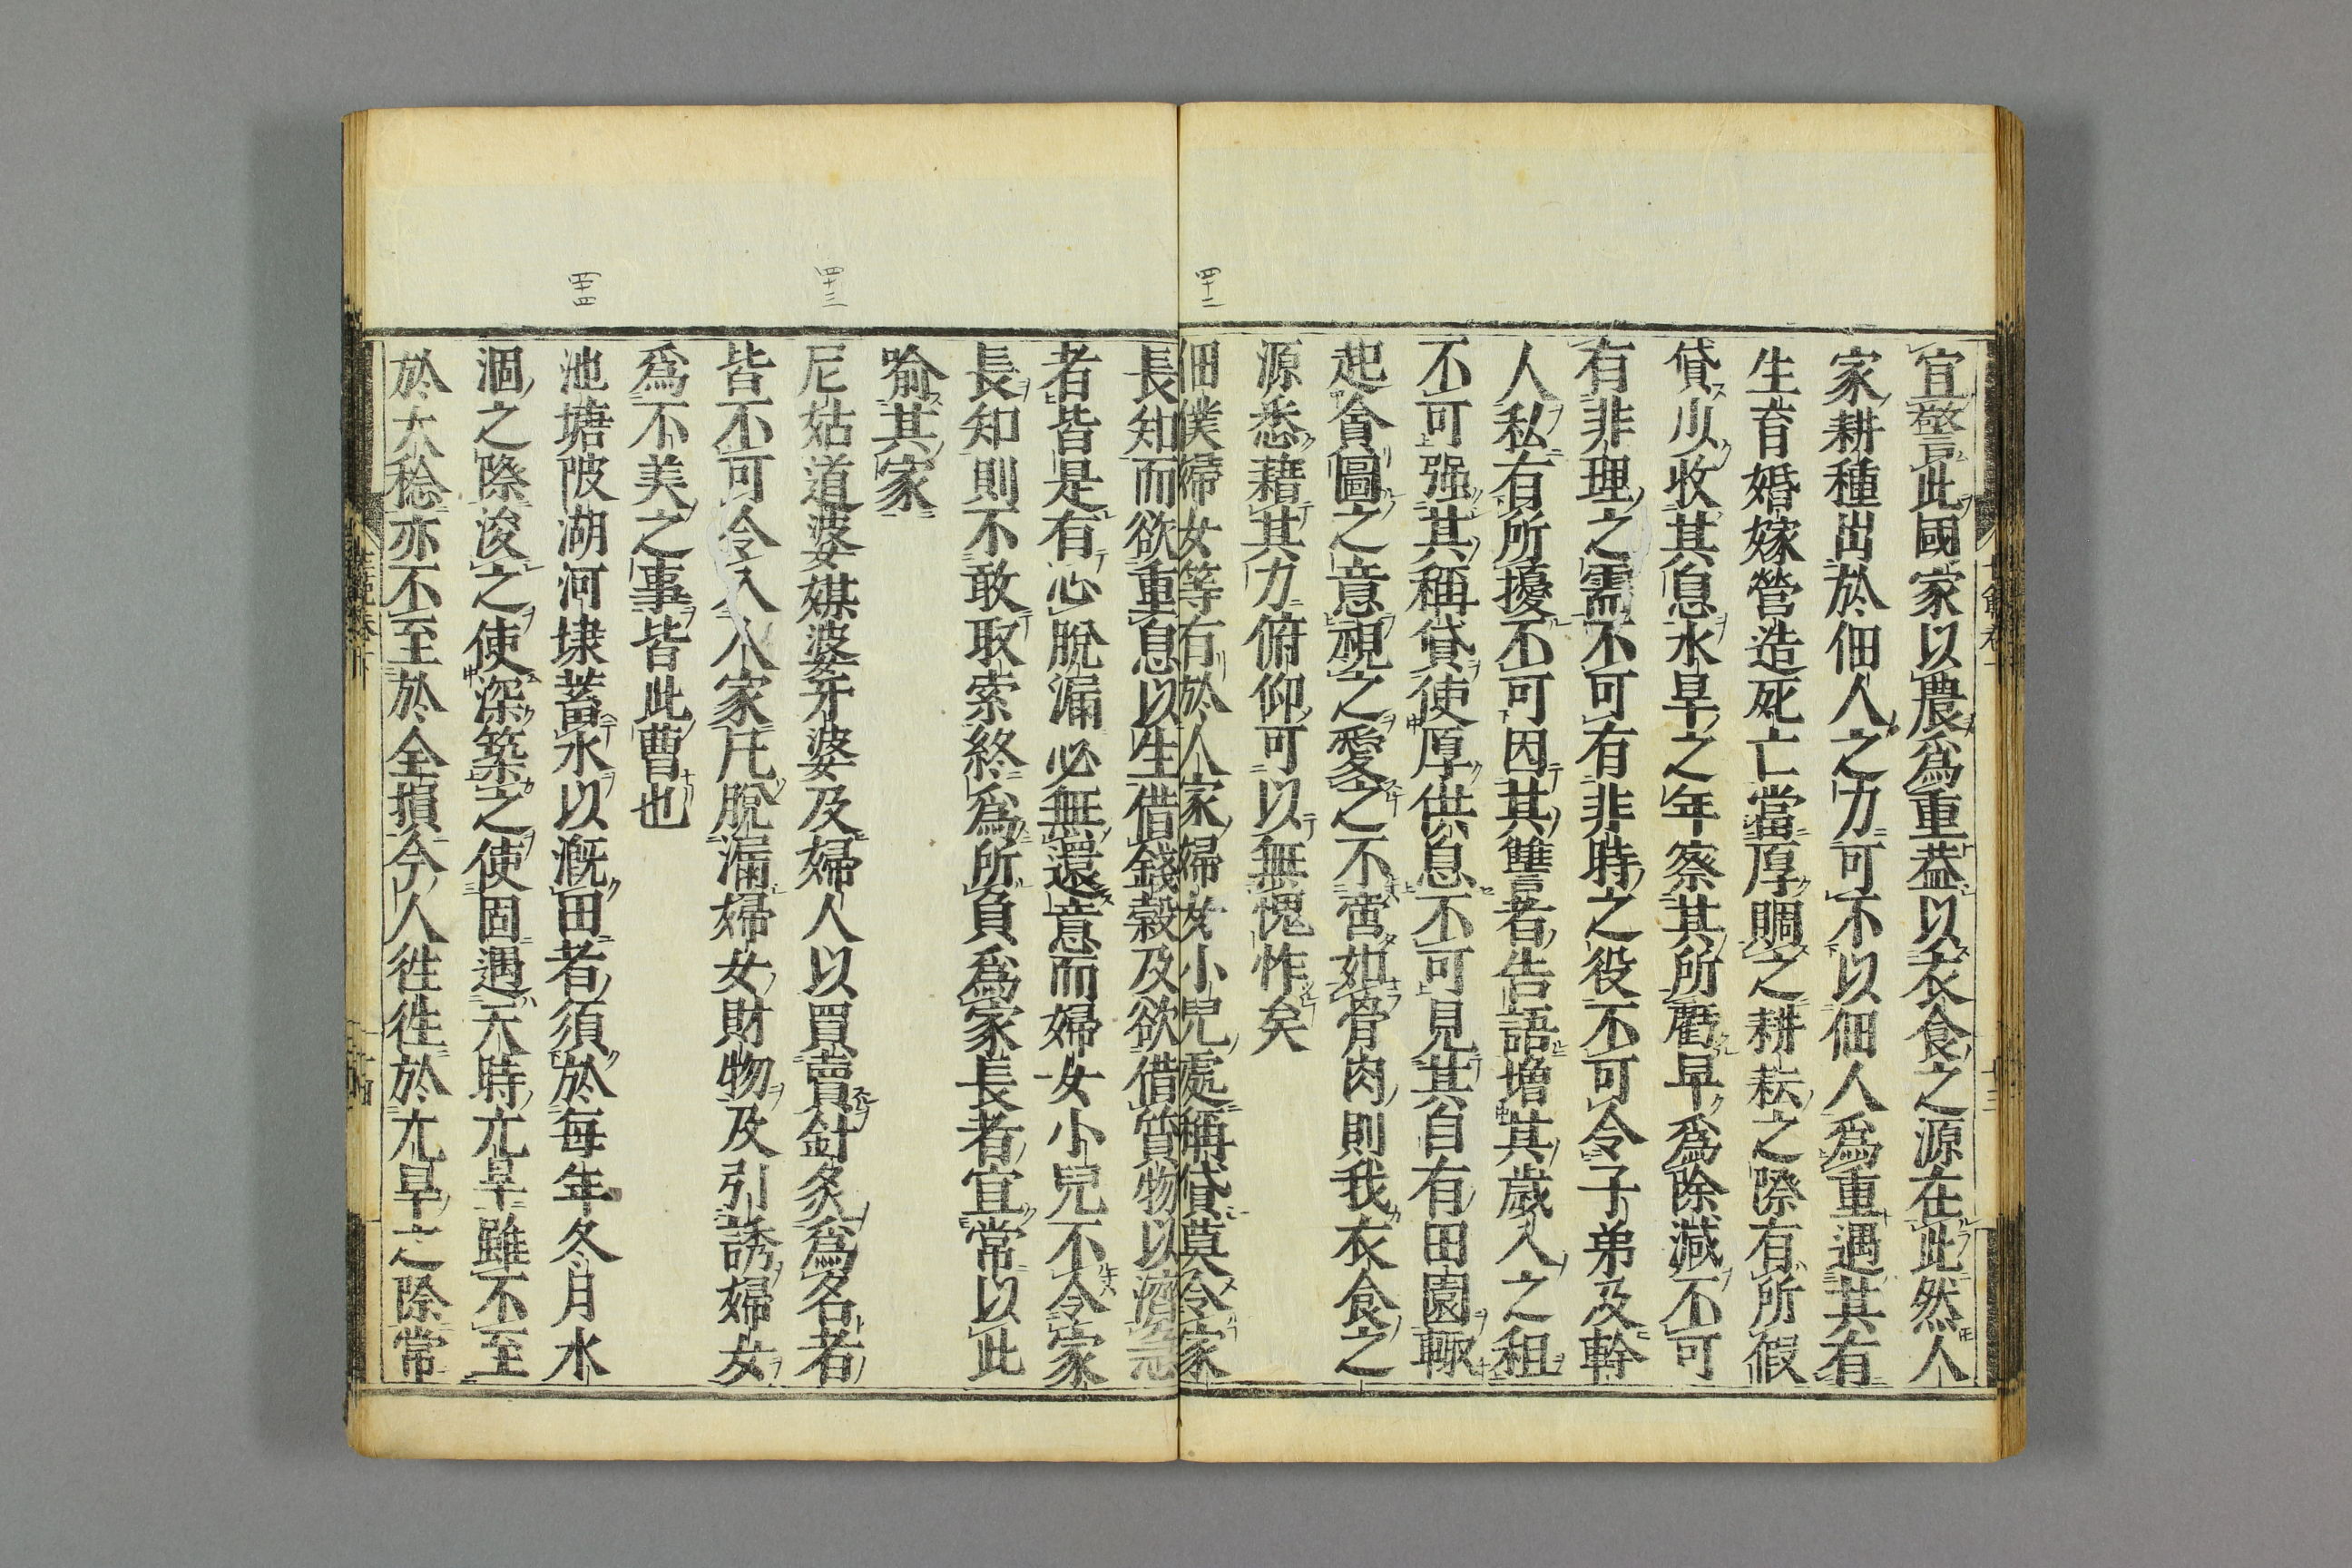 宜警此國家以農爲重葢以衣食之源在此然人
家耕種出於佃人之力可不以佃人爲重遇其有
生育婚嫁營造死亡當厚賙之耕耘之際有所假
貸少收其息水旱之年察其所虧早爲除減不可
有非理之需不可有非時之役不可令子弟及幹
人私有所擾不可因其讐者告語増其歳入之租
不可强其稱貸使厚供息不可見其自有田園輙
起貪圖之意視之愛之不啻如骨肉則我衣食之
源悉藉其力俯仰可以無愧怍矣
四十二
佃僕婦女等有於人家婦女小児處稱貸莫令家
長知而欲重息以生借錢穀及欲借質物以濟急
者皆是有心脫漏必無還意而婦女小児不令家
長知則不敢取索終爲所負爲家長者宜常以此
喻其家
四十三
尼姑道婆媒婆牙婆及婦人以買賣針灸爲名者
皆不可令入人家凡脫漏婦女財物及引誘婦女
爲不美之事皆此曹也
四十四
池塘陂湖河埭蓄水以漑田者須於每年冬月水
涸之際浚之使深築之使固遇天時亢旱雖不至
於大稔亦不至於全損今人徃徃於亢旱之際常